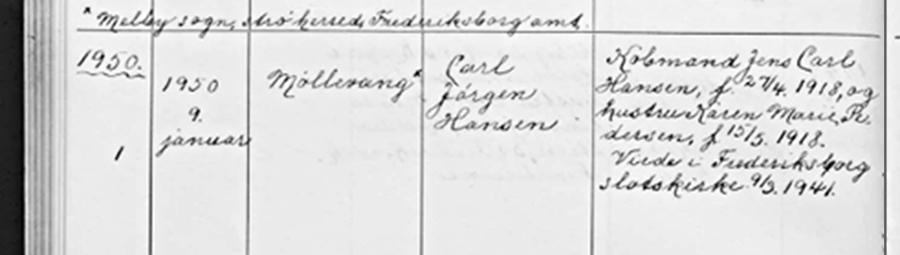 * Melby sogn, strø herred, Frederiksborg amt.
1950.
1
1950
9.
januar
Möllevang*
Carl
Jörgen
Hansen
Köbmand Jens Carl
Hansen, f. 27/4. 1918, og
hustru Karen Marie Pe-
dersen, f 15/5. 1918.
Viede i Frederiksborg
slotskirke 9/3. 1941.